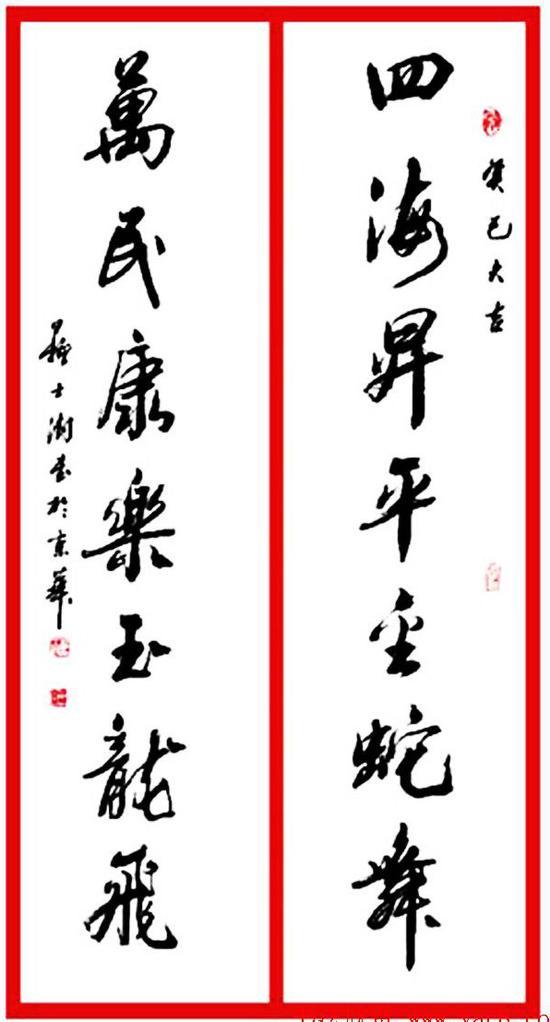 癸巳大吉
四海昇平金蛇舞
萬民康樂玉龍飛
蘇士澍書於京華